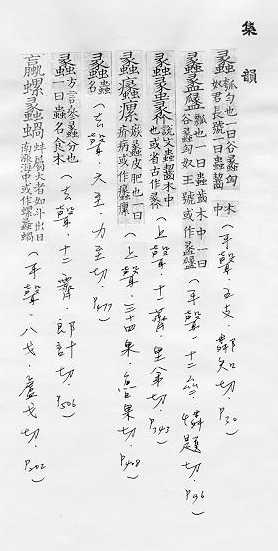 集韻
蠡 瓢勺也一曰谷蠡匈奴君長號一曰蟲齧木中（平聲．五支．鄰知切．P30）
蠡蠫 瓢也一曰蟲齧木中一曰谷蠡匈奴王號或作蠫（平聲．十二齊．憐題切．P96）
蠡 說文蟲齧木中也或省古作（上聲．十一薺．里弟切．P343）
蠡 瘯蠡皮肥也一曰疥病或作（上聲．三十四果．魯果切．P408）
蠡 蟲名（去聲．六至．力至切．P477）
蠡 方言參蠡分也一曰蟲名食木（去聲．十二霽．郎計切．P506）
螺蠡蝸 蚌屬大者如斗出日南漲海中或作螺蠡蝸（平聲．八戈．盧戈切．P202）